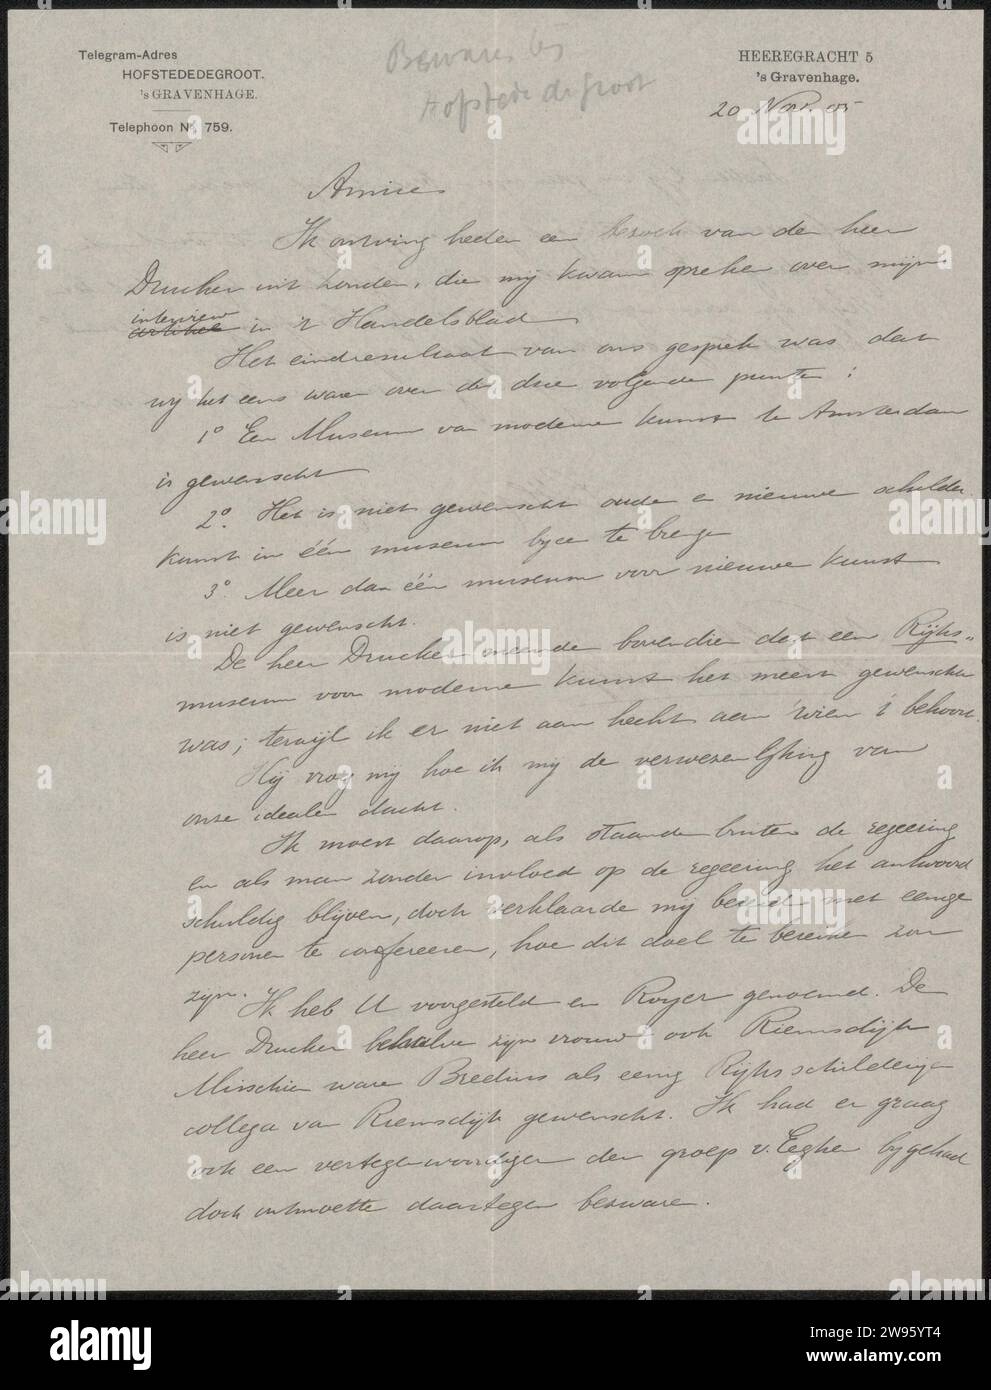 Telegram-Adres
HOFSTEDEDEGROOT.
'sGRAVENHAGE.
Telephoon No. 759.
Hofstede de Groot
HEEREGRACHT 5
's Gravenhage.
20 Nov. 05
Amice
Ik ontving heden een bezoek van den heer
Drucker uit Londen, die mij kwam spreken over mijn
interview
artikel in 't Handelsblad
Het eindresultaat van ons gesprek was dat
wij het eens waren over de drie volgende punten :
1° Een Museum van moderne kunst te Amsterdam
is gewenscht
2°. Het is niet gewenscht oude en nieuwe schilder
kunst in één museum byeen te brengen
3°. Meer dan één museum voor nieuwe kunst
is niet gewenscht.
De heer Drucker meende bovendien dat een Rijks-
museum voor moderne kunst het meest gewenscht
was; terwijl ik er niet aan hecht aan wien 't behoort.
Hij vroeg mij hoe ik mij de verwezenlijking van
onze idealen dacht.
Ik moest daarop, als staande buiten de regeering
en als man zonder invloed op de regeering het antwoord
schuldig blijven, doch verklaarde mij bereid met eenige
personen te confereeren, hoe dit doel te bereiken zou
zijn.
Ik heb U voorgesteld en Royer genoemd. De
heer Drucker behalve zijn vrouw ook Riemsdijk
Misschien ware Bredius als eenig Rijksschilderijen
collega van Riemsdijk gewenscht. Ik had er graag
ook een vertegenwoordiger der groep v. Eeghen bygehad
doch ontmoette daartegen bezwaren.
alamy
Image ID: 2W95YT4
www.alamy.com